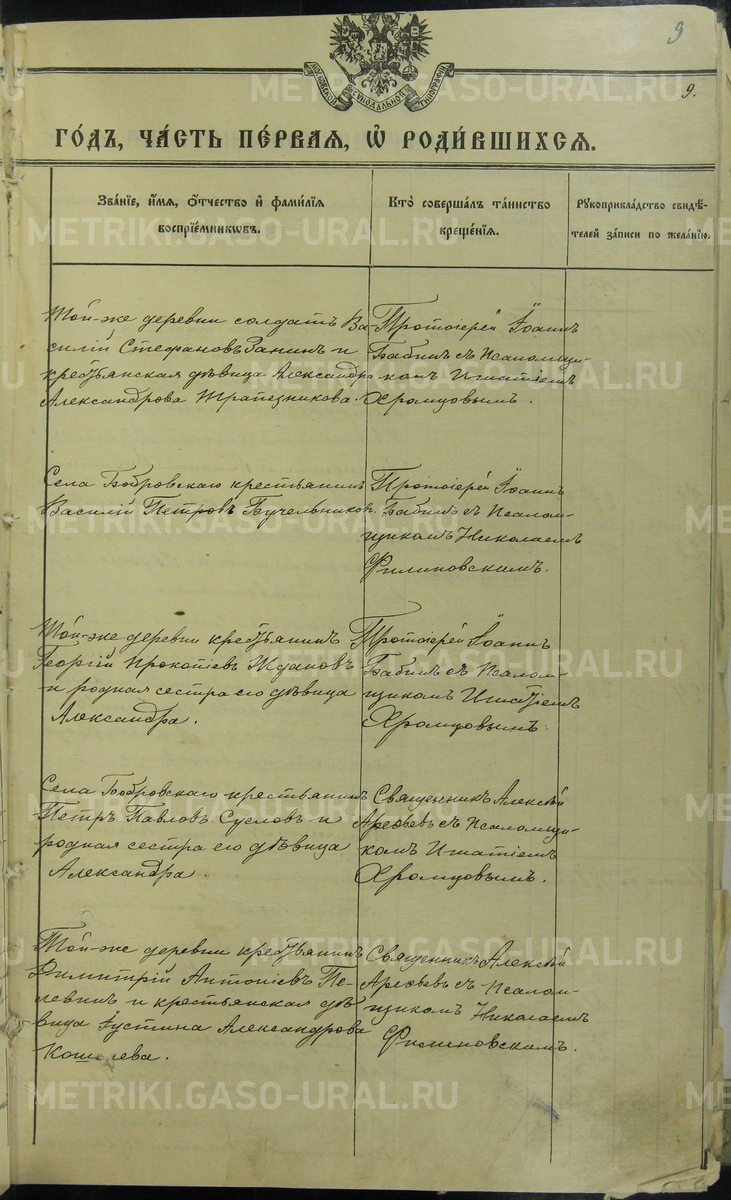 9
МОСКОВСКОЙ СѴНОДАЛЬНОЙ ТИПОГРАФІИ
9.
ГО́ДЪ, ЧА́СТЬ ПЕ́РВАЯ, Ѽ РОДИ́ВШИХСЯ.
Зва́ніе, и́мя, о́тчество и фами́лія
воспріе́мниковъ.
Кто̀ соверша́лъ та́инство
креще́нія.
Рꙋкоприкла́дство свидѣ́-
телей за́писи по жела́нію.
Той-же деревни солдатъ Ва-
силій Стефановъ Занинъ и
крестьянская дѣвица Александра
Александрова Трапезникова.
Протоіерей Іоаннъ
Бабинъ съ Псаломщи-
комъ Игнатіемъ
Хромцовымъ.
Села Бобровскаго крестьянинъ
Василій Петровъ Бучельников.
Протоіерей Іоаннъ
Бабинъ съ Псалом-
щикомъ Николаемъ
Филиповскимъ.
Той-же деревни крестьянинъ
Георгій Прокопіевъ Ждановъ
и родная сестра его дѣвица
Александра.
Протоіерей Іоаннъ
Бабинъ съ Псалом-
щикомъ Игнатіемъ
Хромцовымъ.
Села Бобровскаго крестьянинъ
Петръ Павловъ Сусловъ и
родная сестра его дѣвица
Александра.
Священникъ Алексѣй
Арефьевъ съ Псаломщи-
комъ Игнатіемъ
Хромцовымъ.
Той-же деревни крестьянинъ
Димитрій Антоніевъ Пе-
левинъ и крестьянская дѣ-
вица Іустина Александрова
Кошелева.
Священникъ Алексѣй
Арефьевъ съ Псалом-
щикомъ Николаемъ
Филиповскимъ.
METRIKI.GASO-URAL.RU